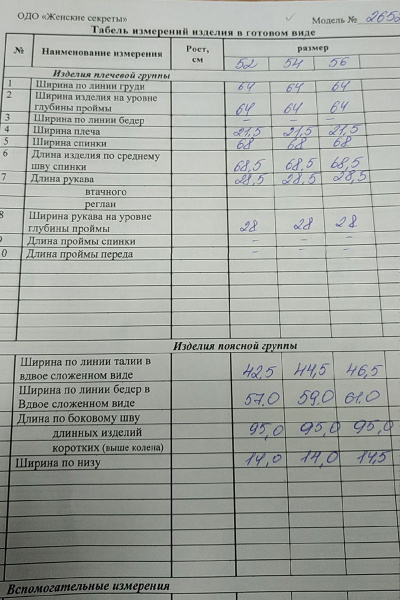 ОДО «Женские секреты» Модель № 2652
Табель измерений изделия в готовом виде
№ Наименование измерения Рост, см размер
52 54 56
Изделия плечевой группы
1 Ширина по линии груди 64 64 64
2 Ширина изделия на уровне
глубины проймы 64 64 64
3 Ширина по линии бедер – – –
4 Ширина плеча 21,5 21,5 21,5
5 Ширина спинки 68 68 68
6 Длина изделия по среднему
шву спинки 68,5 68,5 68,5
7 Длина рукава 28,5 28,5 28,5
втачного
реглан
8 Ширина рукава на уровне
глубины проймы 28 28 28
9 Длина проймы спинки – – –
0 Длина проймы переда – – –
Изделия поясной группы
Ширина по линии талии в
вдвое сложенном виде 42,5 44,5 46,5
Ширина по линии бедер в
Вдвое сложенном виде 57.0 59.0 61.0
Длина по боковому шву
длинных изделий 95,0 95,0 95,0
коротких (выше колена)
Ширина по низу 14,0 14,0 14,5
Вспомогательные измерения